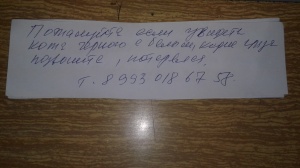 Пожалуйста если увидите
кота чёрного с белым,
позвоните, потерялся.
т. 8 993 018 67 58